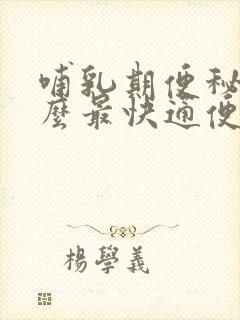 哺乳期便秘
麼最快通便
楊學義